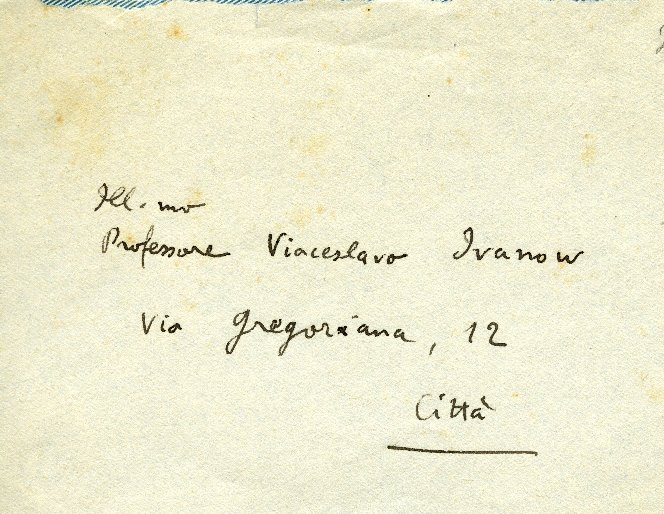 Ill.mo
Professore Viaceslavo Ivanow
Via Gregoriana, 12
Città